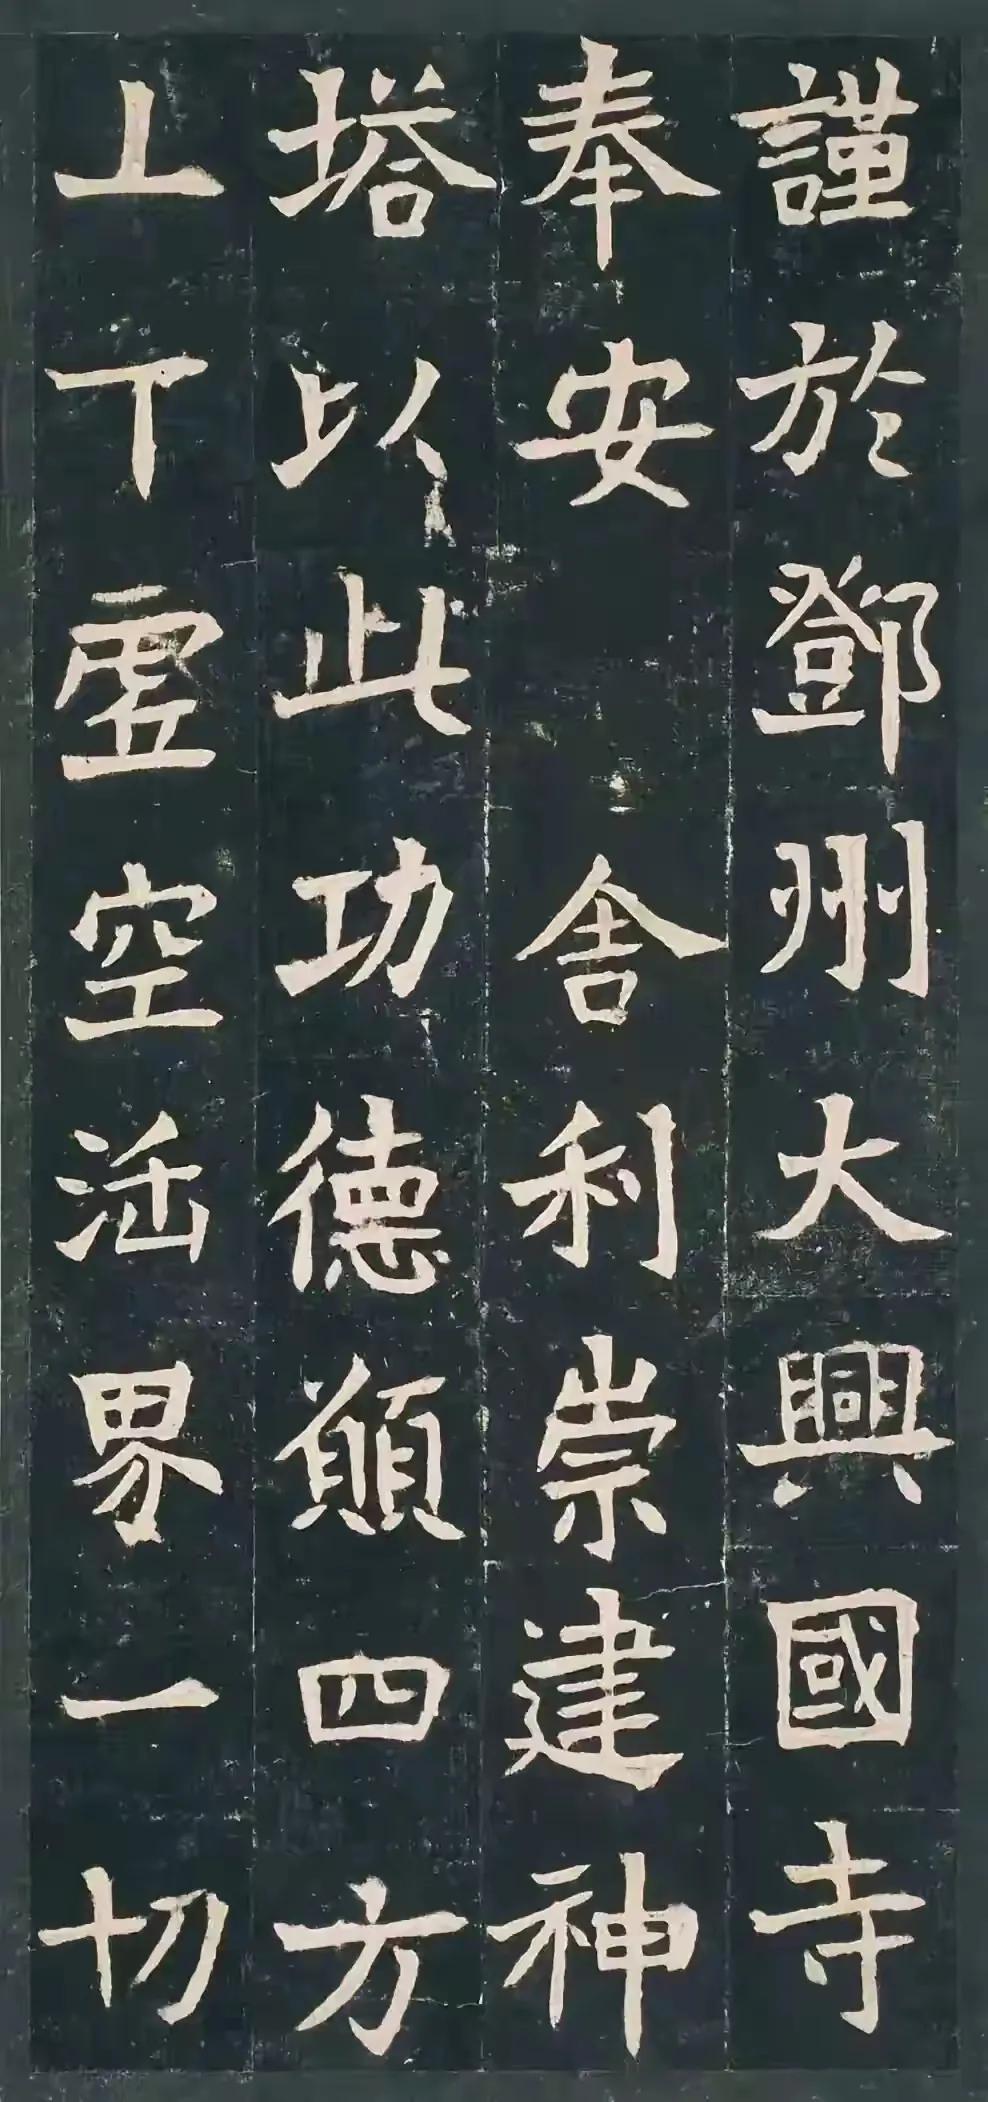 謹於鄧州大興國寺
奉安舍利崇建神
塔以此功德願四方
上下虛空法界一切